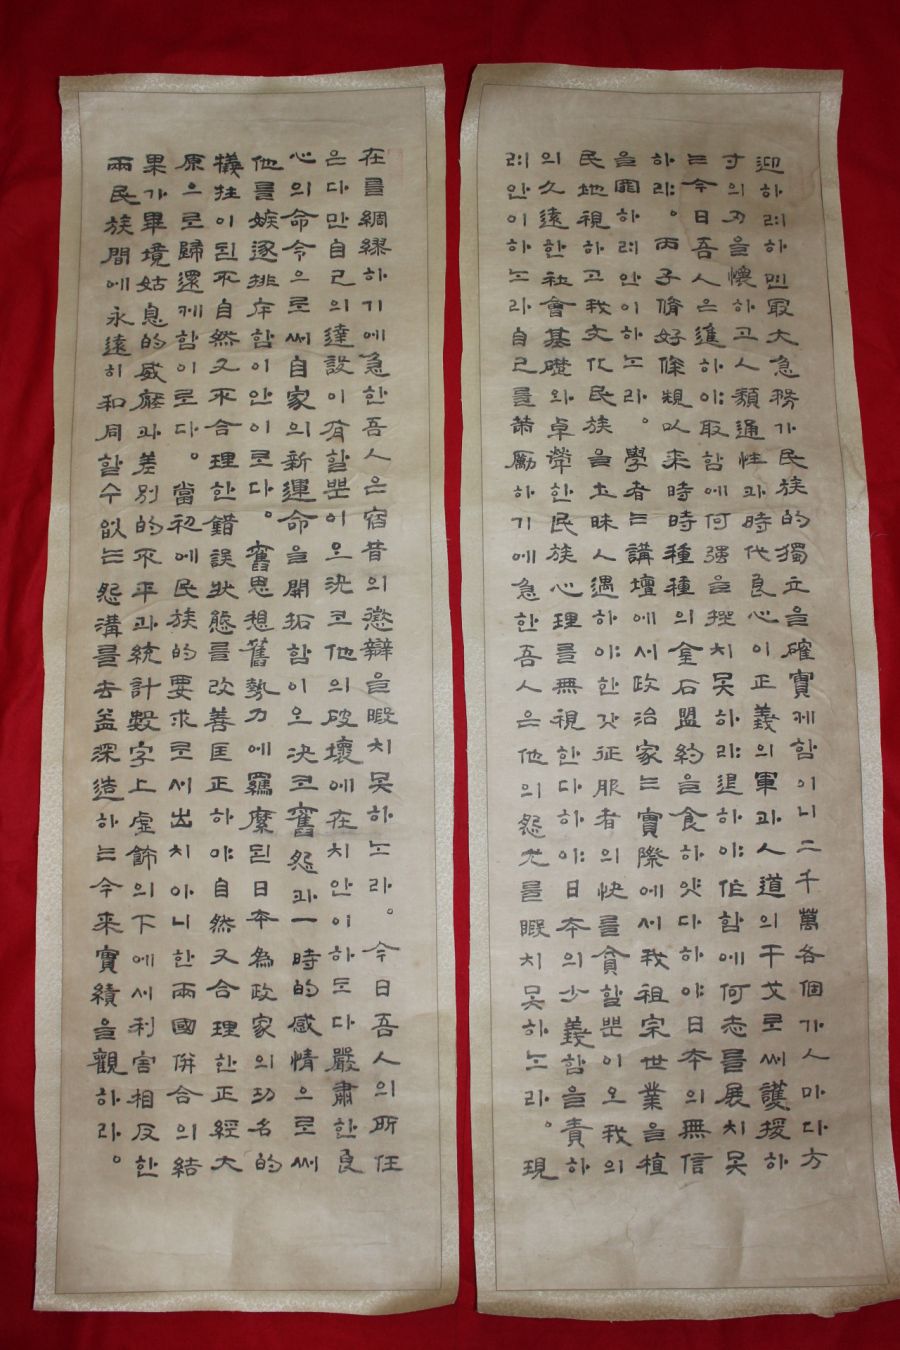 迎하려하면最大急務가民族的獨立을確實케함이니二千萬各個가人마다方
寸의刃을懷하고人類通性과時代良心이正義의軍과人道의干戈로써護援하
는今日吾人은進하야取함에何强을挫치못하랴退하야作함에何志를展치못
하랴。丙子修好條規以來時時種種의金石盟約을食하얏다하야日本의無信
을罪하려안이하노라。學者는講壇에서政治家는實際에서我祖宗世業을植
民地視하고我文化民族을土昧人遇하야한갓征服者의快를貪할뿐이오我의
의久遠한社會基礎와卓犖한民族心理를無視한다하야日本의少義함을責하
려안이하노라自己를策勵하기에急한吾人은他의怨尤를暇치못하노라。現
在를綢繆하기에急한吾人은宿昔의懲辯을暇치못하노라。今日吾人의所任
은다만自己의建設이有할뿐이오決코他의破壞에在치안이하도다嚴肅한良
心의命令으로써自家의新運命을開拓함이오決코舊怨과一時的感情으로써
他를嫉逐排斥함이안이로다。舊思想舊勢力에羈縻된日本為政家의功名的
犧牲이된不自然又不合理한錯誤狀態를改善匡正하야自然又合理한正經大
原으로歸還케함이로다。當初에民族的要求로서出치아니한兩國倂合의結
果가畢境姑息的威壓과差別的不平과統計數字上虛飾의下에서利害相反한
兩民族間에永遠히和同할수없는怨溝를去益深造하는今來實績을觀하라。